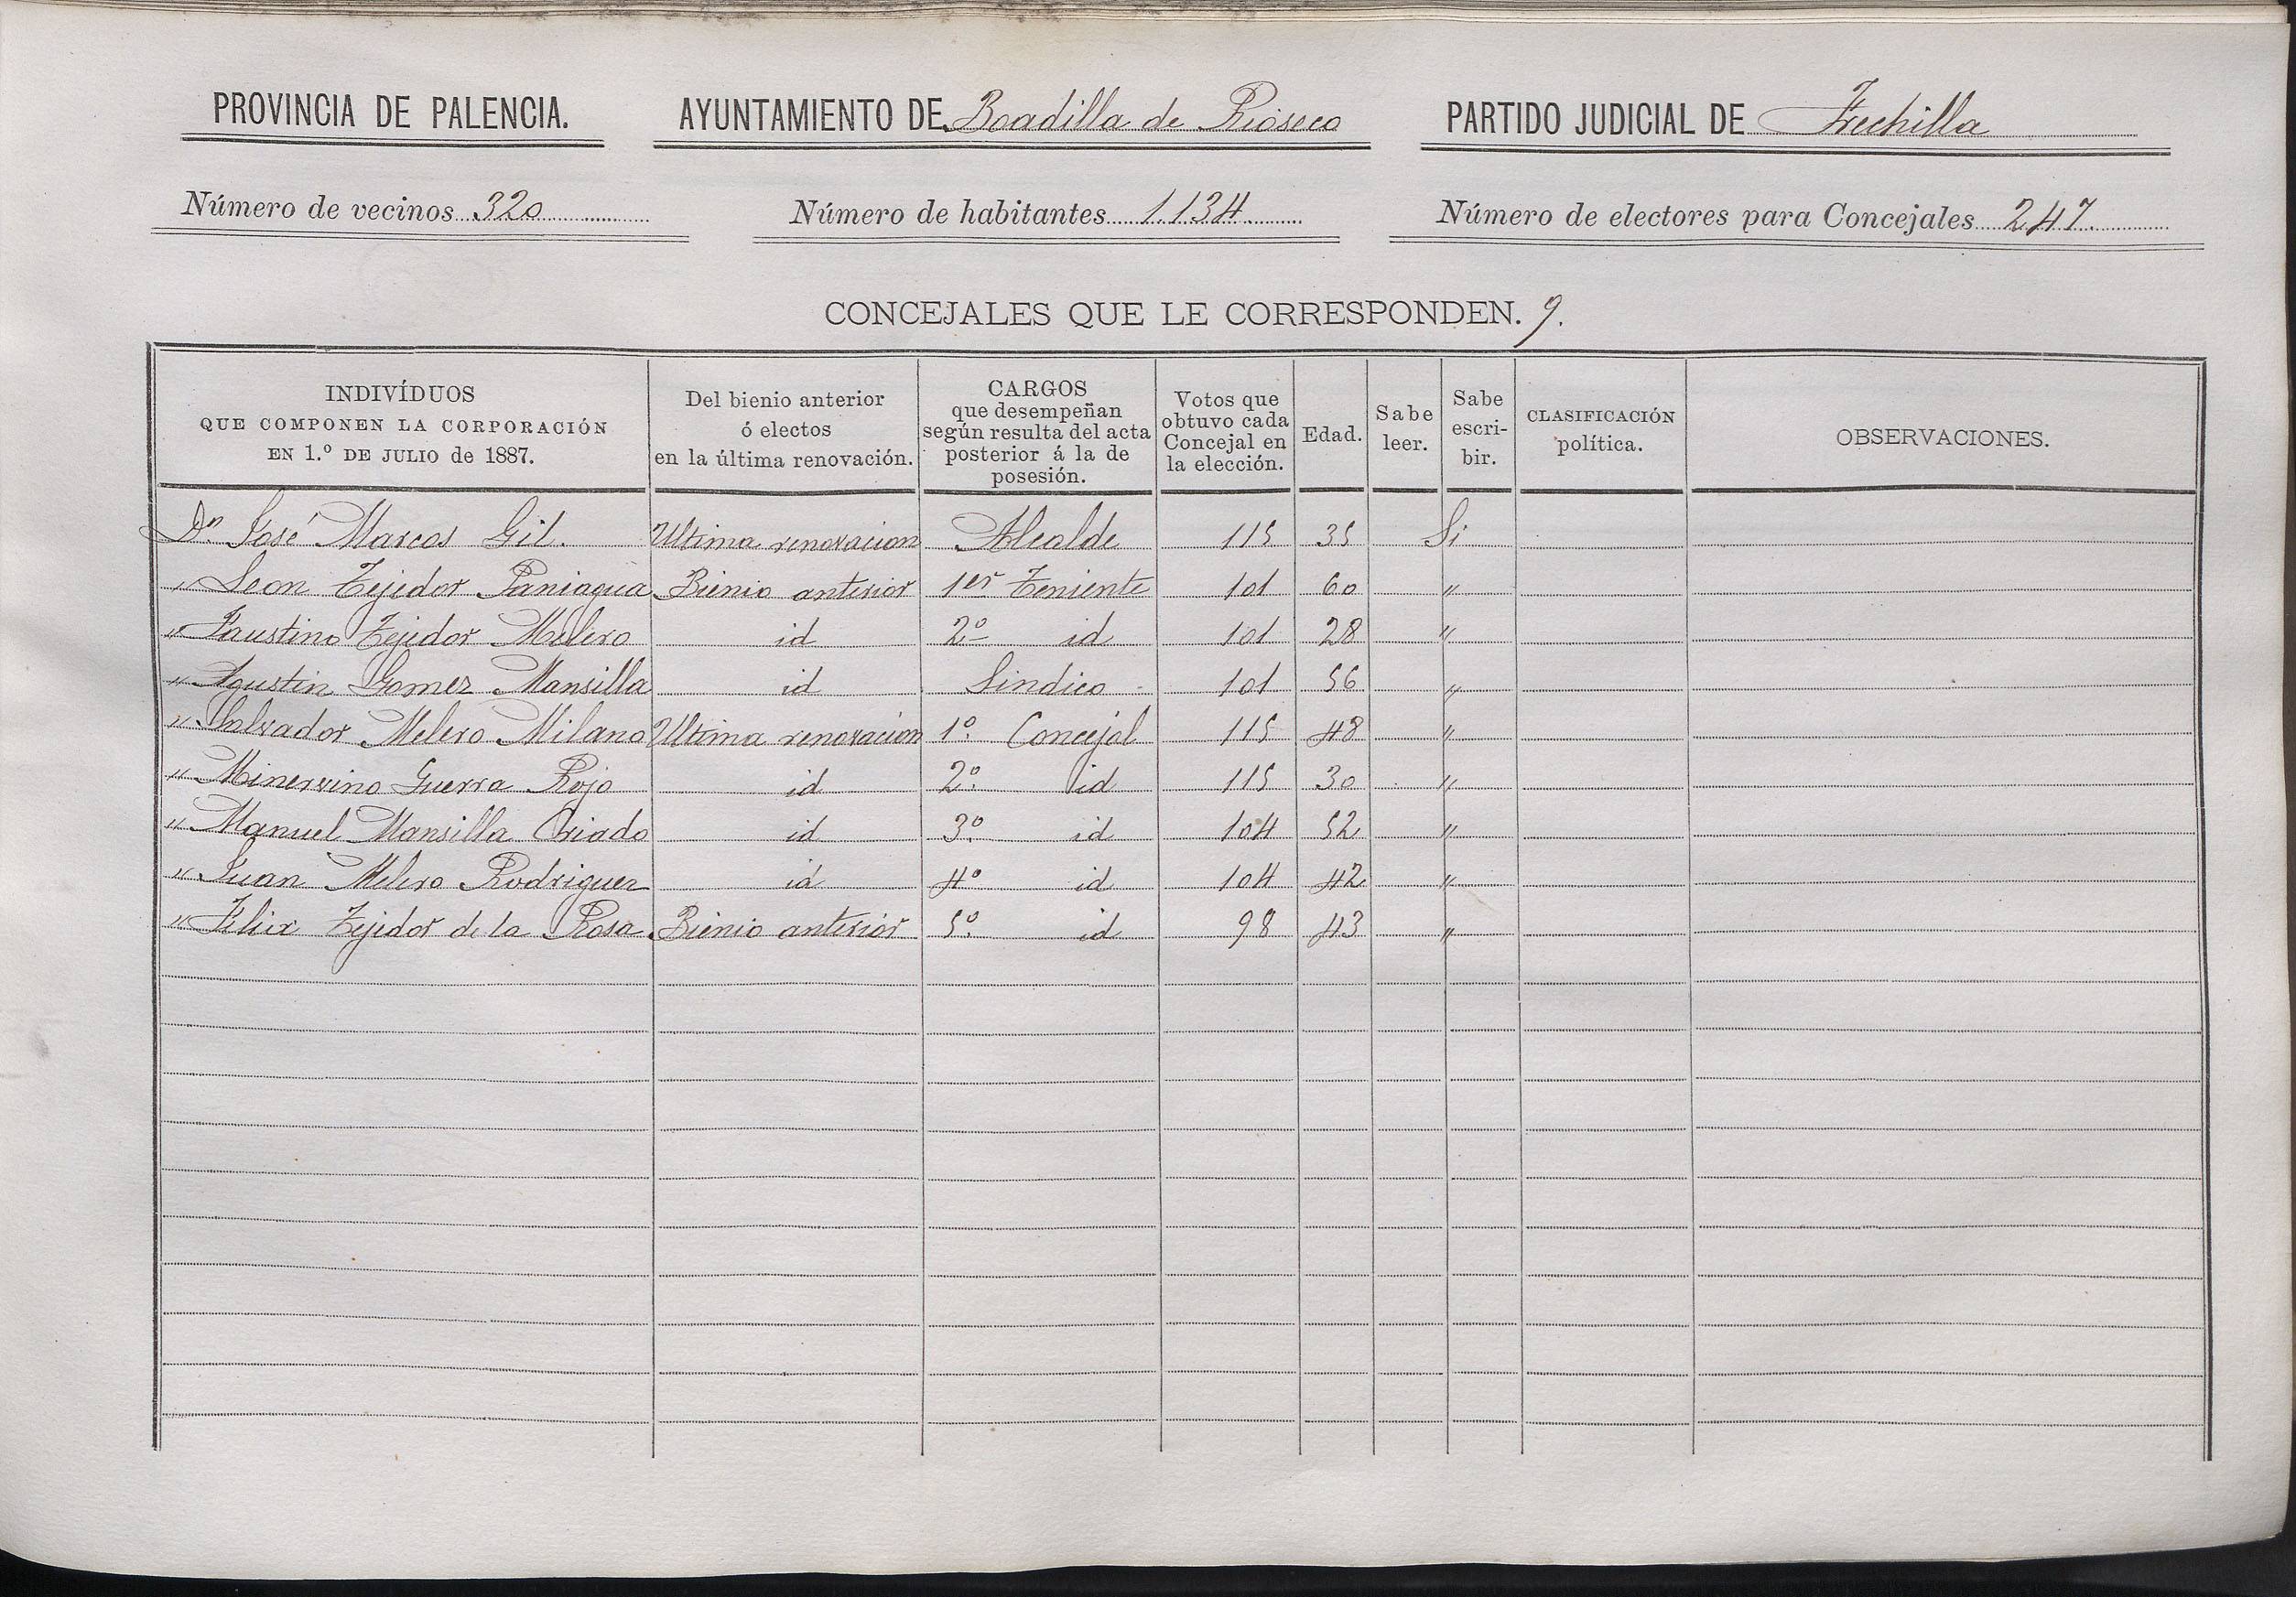 PROVINCIA DE PALENCIA. AYUNTAMIENTO DE Boadilla de Rioseco PARTIDO JUDICIAL DE Frechilla
Número de vecinos 320 Número de habitantes 1134 Número de electores para Concejales 247.
CONCEJALES QUE LE CORRESPONDEN. 9.
INDIVÍDUOS
QUE COMPONEN LA CORPORACIÓN
EN 1.º DE JULIO de 1887.
Del bienio anterior
ó electos
en la última renovación.
CARGOS
que desempeñan
según resulta del acta
posterior á la de
posesión.
Votos que
obtuvo cada
Concejal en
la elección.
Edad.
Sabe
leer.
Sabe
escri-
bir.
CLASIFICACIÓN
política.
OBSERVACIONES.
Dn. José Marcos Gil. Ultima renovacion Alcalde 115 35 Si
" Leon Tejedor Paniagua Bienio anterior 1er Teniente 101 60 "
" Faustino Tejedor Melero id 2º id 101 28 "
" Agustin Gomez Mansilla id Sindico 101 56 "
" Salvador Melero Milano Ultima renovacion 1º. Concejal 115 48 "
" Minervino Guerra Rojo id 2º. id 115 30 "
" Manuel Mansilla Criado id 3º. id 104 52 "
" Juan Melero Rodriguez id 4º id 104 42 "
" Felix Tejedor de la Rosa Bienio anterior 5º. id 98 43 "